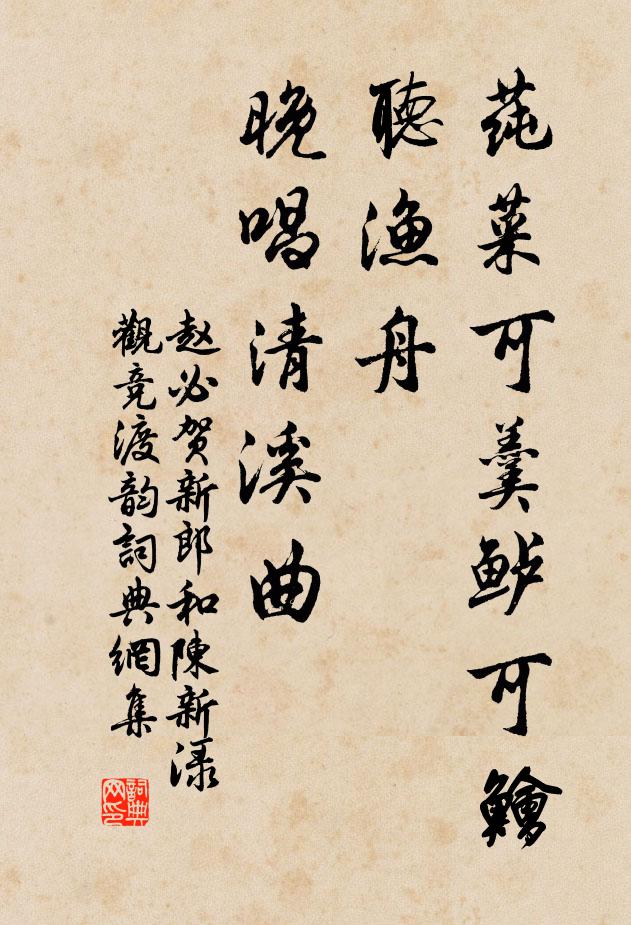 莼菜可羹鲈可鱠
聽渔舟
晚唱清溪曲
赵必贺新郎和陳新渌
觀竞渡韵詞典網集
詞典网印